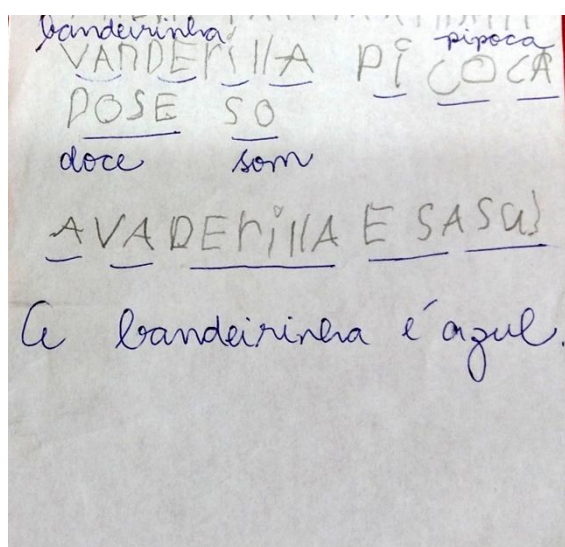 bandeirinha pipoca
VANDERillA Pi COCA
DOSE SO
doce som
AVADERillA E SASUl
A bandeirinha é azul.